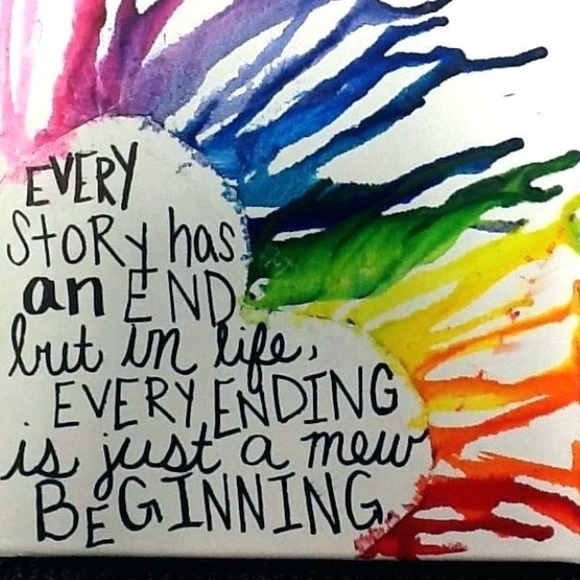 EVERY
StORy has
an END
but in life,
EVERY ENDING
is just a new
BEGINNING.